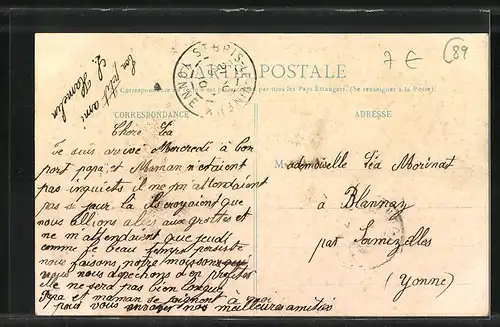 7 €
89
ton petit ami
L. Hamelin
CARTE POSTALE
La Correspondance au
par tous les Pays Étrangers. (Se renseigner à la Poste).
CORRESPONDANCE
ADRESSE
ST-BRIS-LE-
YONNE
Chère Léa
Je suis arrivé Mercredi à bon
port papa et Maman n'étaient
pas inquiets il ne m'attendaient
pas si pour la ils croyaient que
nous allions alés aux grottes et
ne m'attendaient que jeudi
comme le beau temps
nous faisons notre moisson
nous nous dépechons d'en profiter
elle ne sera pas bien longue
Papa et maman se joignent à moi
pour vous envoyer nos meilleures amitiés
Mademoiselle Léa Morinat
à Blannay
par Sermizelles
(Yonne)